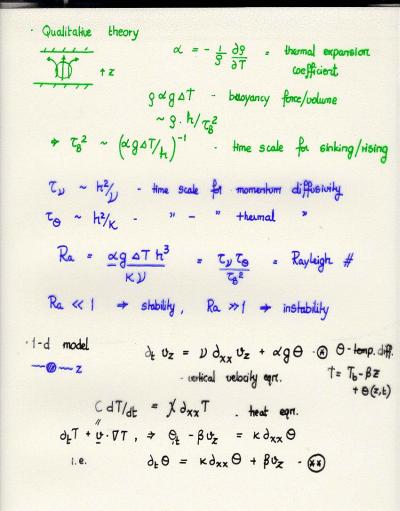 · Qualitative theory
α = - 1/ρ ∂ρ/∂T = thermal expansion coefficient
↑ z
ραgΔT - buoyancy force/volume
~ ρ. h/τ_B²
⇒ τ_B² ~ (αgΔT/h)⁻¹ - time scale for sinking/rising
τ_ν ~ h²/ν - time scale for momentum diffusivity
τ_Θ ~ h²/κ - " - " thermal "
Ra = αgΔT h³/κν = τ_ν τ_Θ/τ_B² = Rayleigh #
Ra << 1 → stability, Ra >> 1 → instability
· 1-d model
∂_t v_z = ν ∂_xx v_z + αgθ - ⊛ θ - temp. diff.
z
- vertical velocity eqn.
T = T_b - βz + θ(z,t)
C dT/dt = χ ∂_xx T - heat eqn.
∂_t T + v · ∇T, ⇒ θ_t - βv_z = κ ∂_xx θ
i.e. ∂_t θ = κ∂_xx θ + βv_z - (**)